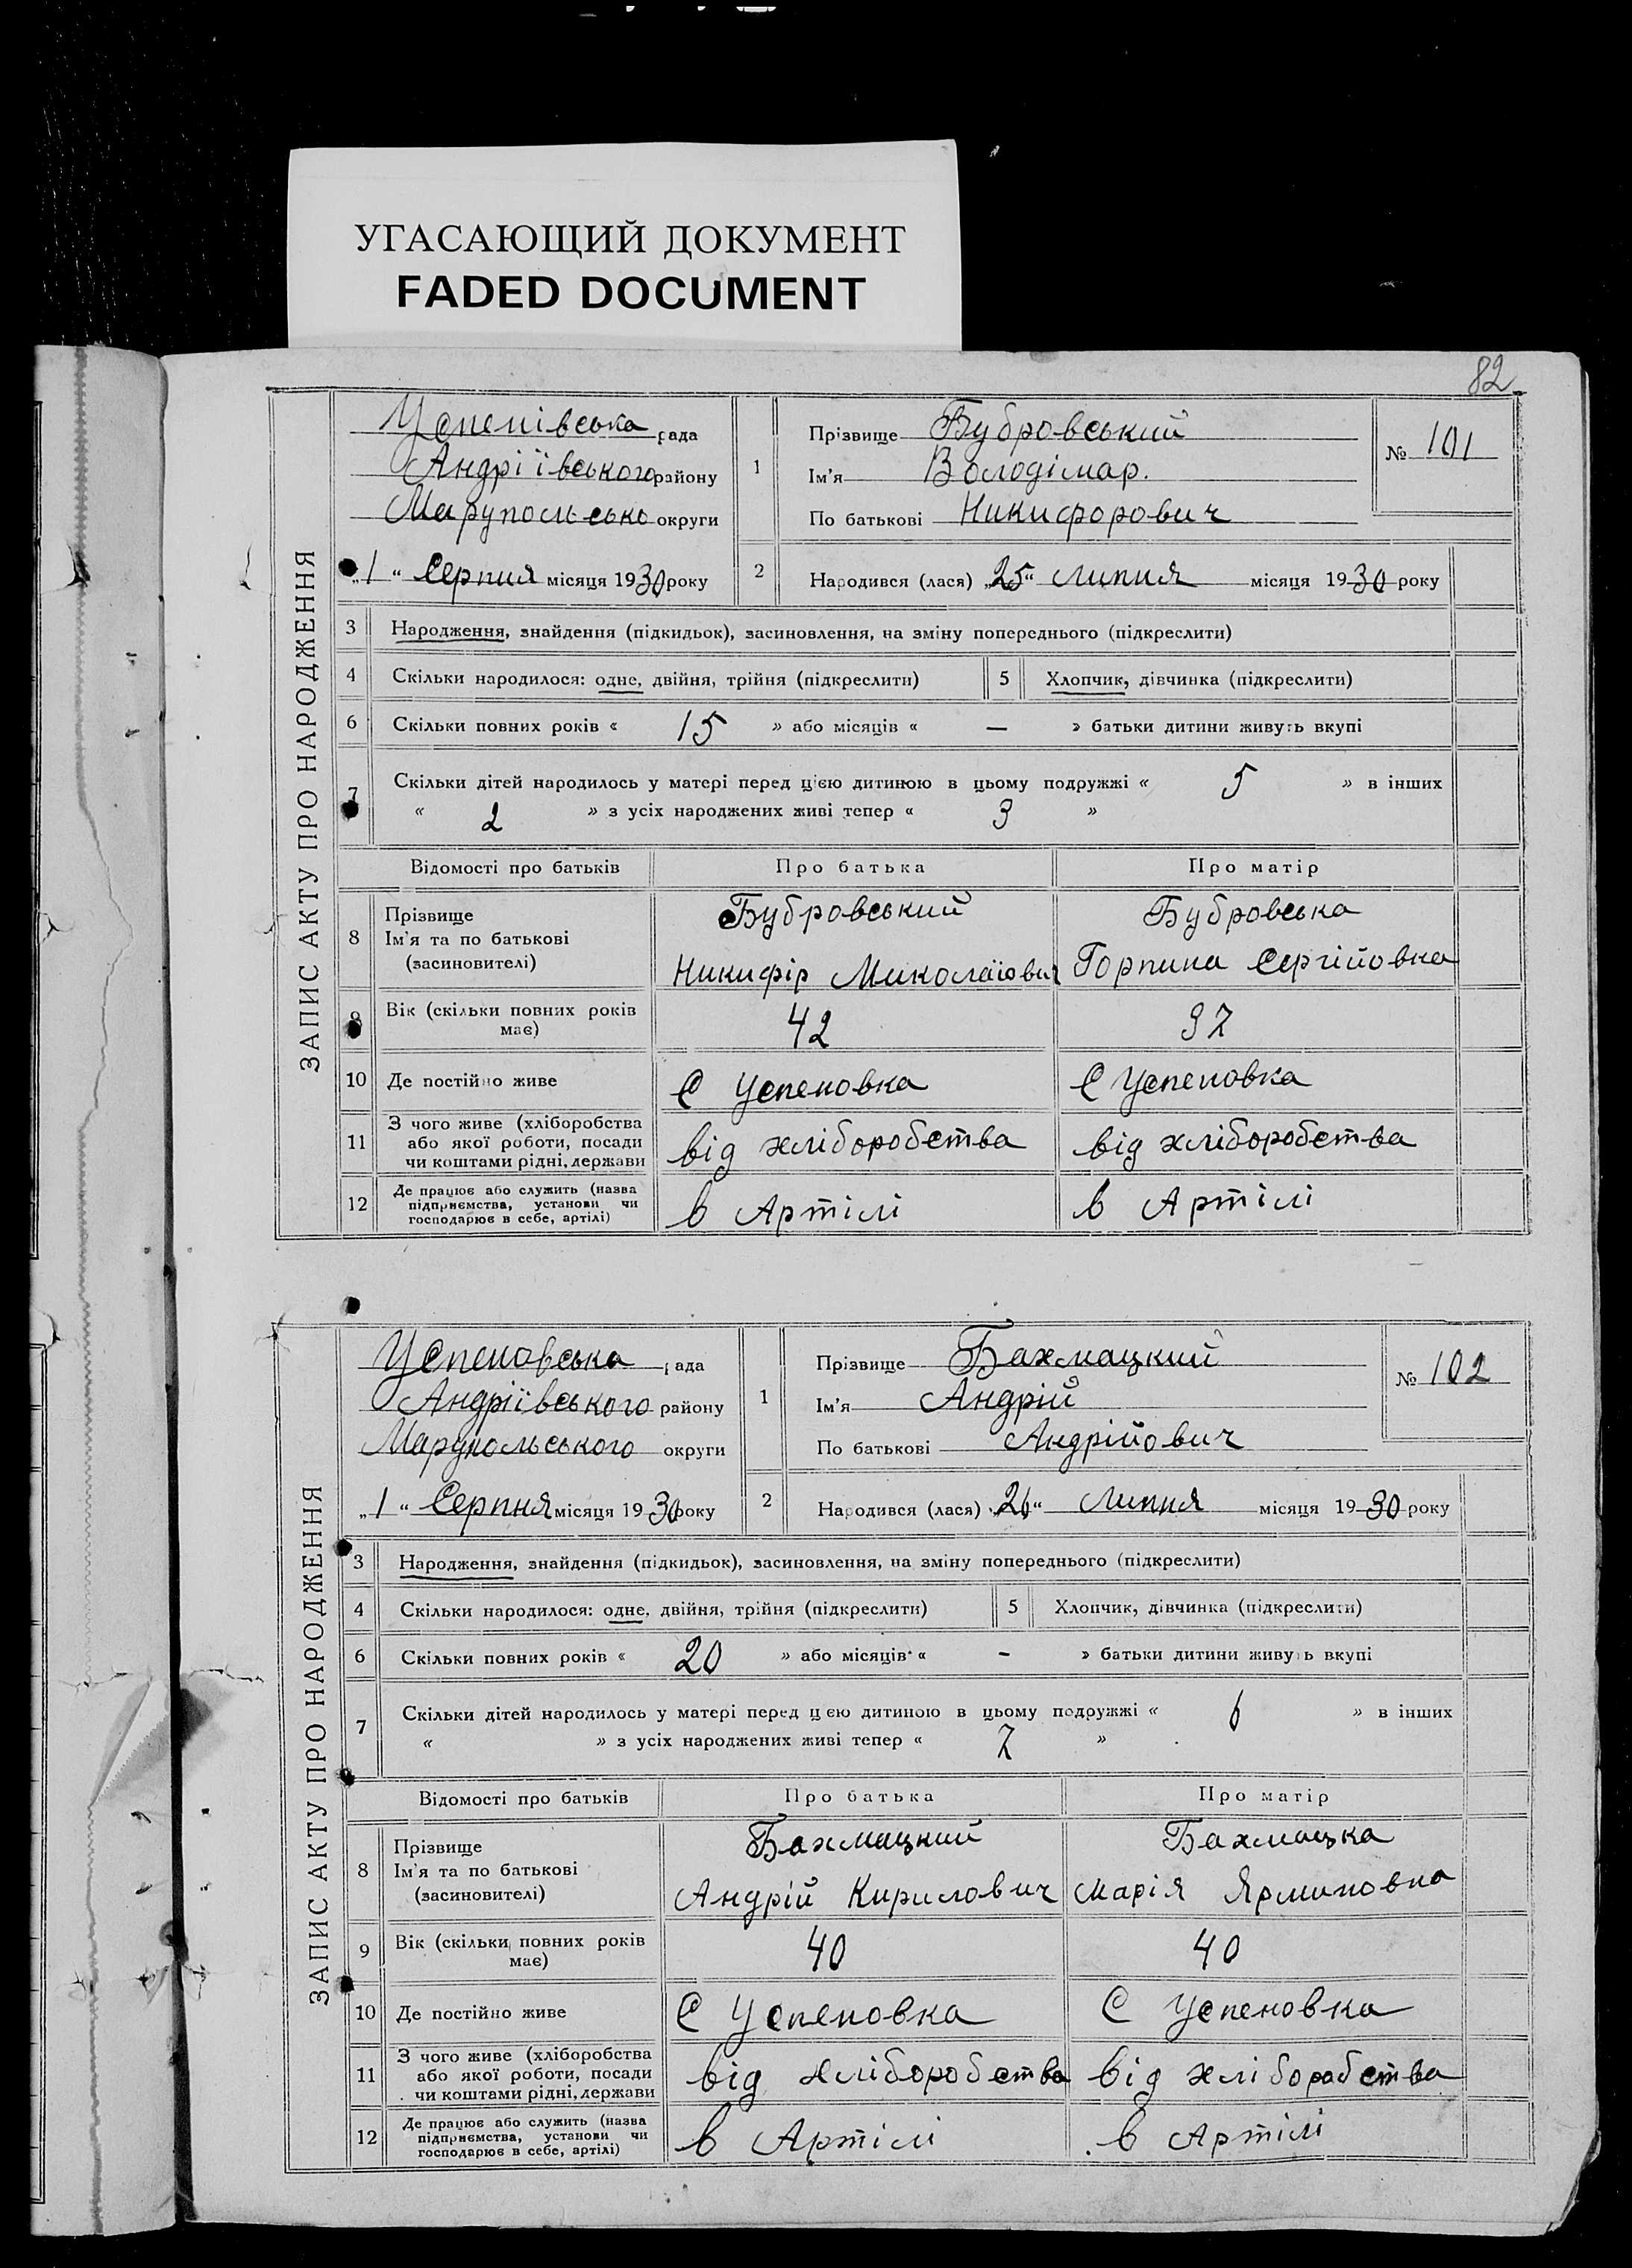 УГАСАЮЩИЙ ДОКУМЕНТ
FADED DOCUMENT
82
ЗАПИС АКТУ ПРО НАРОДЖЕННЯ
Успенівська рада
Андріївського району
Марупольсько округи
„1“ Серпня місяця 1930 року
1
Прізвище Бубровський
Ім'я Володімар.
По батькові Никифорович
№ 101
2 Народився (лася) „25“ Липня місяця 1930 року
3 Народження, знайдення (підкидьок), засиновлення, на зміну попереднього (підкреслити)
4 Скільки народилося: одне, двійня, трійня (підкреслити) 5 Хлопчик, дівчинка (підкреслити)
6 Скільки повних років « 15 » або місяців « — » батьки дитини живуть вкупі
7 Скільки дітей народилось у матері перед цією дитиною в цьому подружжі « 5 » в інших
« 2 » з усіх народжених живі тепер « 3 »
Відомості про батьків Про батька Про матір
8 Прізвище Бубровський Бубровська
Ім'я та по батькові
(засиновителі) Никифір Миколаїович Горпина Сергійовна
9 Вік (скільки повних років має) 42 37
10 Де постійно живе С Успеновка С Успеновка
11 З чого живе (хліборобства
або якої роботи, посади
чи коштами рідні, держави від хліборобства від хліборобства
12 Де працює або служить (назва
підприємства, установи чи
господарює в себе, артілі) в Артілі в Артілі
ЗАПИС АКТУ ПРО НАРОДЖЕННЯ
Успеновська рада
Андріївського району
Марупольського округи
„1“ Серпня місяця 1930 року
1
Прізвище Бахмацкий
Ім'я Андрій
По батькові Андрійович
№ 102
2 Народився (лася) „26“ Липня місяця 1930 року
3 Народження, знайдення (підкидьок), засиновлення, на зміну попереднього (підкреслити)
4 Скільки народилося: одне, двійня, трійня (підкреслити) 5 Хлопчик, дівчинка (підкреслити)
6 Скільки повних років « 20 » або місяців « - » батьки дитини живуть вкупі
7 Скільки дітей народилось у матері перед цією дитиною в цьому подружжі « 6 » в інших
« » з усіх народжених живі тепер « 7 »
Відомості про батьків Про батька Про матір
8 Прізвище Бахмацкий Бахмацка
Ім'я та по батькові
(засиновителі) Андрій Кирилович Марія Ярминовна
9 Вік (скільки повних років має) 40 40
10 Де постійно живе С Успеновка С Успеновка
11 З чого живе (хліборобства
або якої роботи, посади
чи коштами рідні, держави від хліборобства від хліборобства
12 Де працює або служить (назва
підприємства, установи чи
господарює в себе, артілі) в Артілі в Артілі